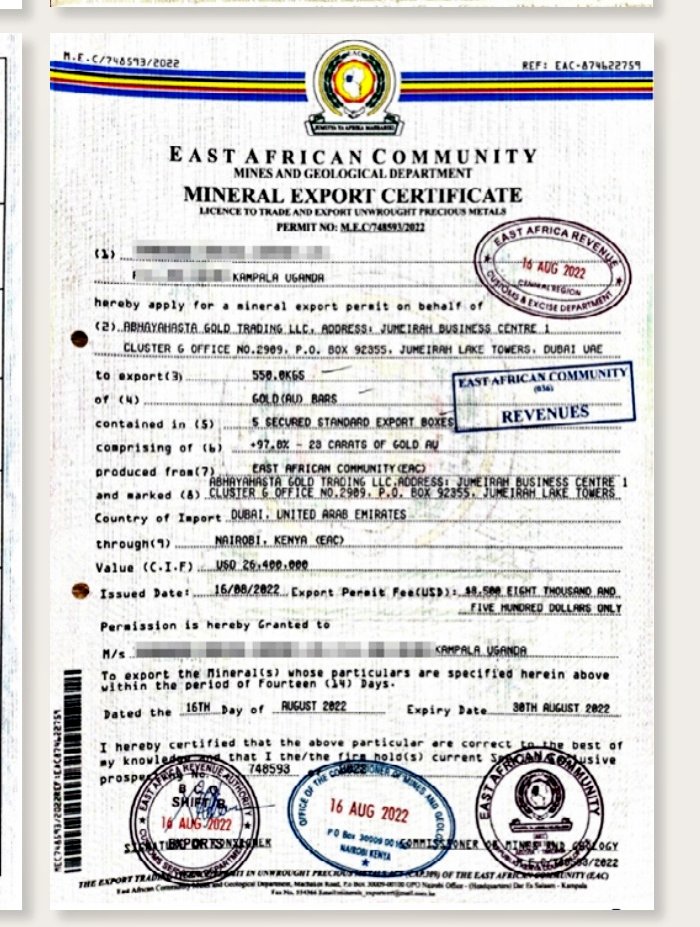 M.E.C/748593/2022
REF: EAC-874622759
EAST AFRICAN COMMUNITY
MINES AND GEOLOGICAL DEPARTMENT
MINERAL EXPORT CERTIFICATE
LICENCE TO TRADE AND EXPORT UNWROUGHT PRECIOUS METALS
PERMIT NO: M.E.C/748593/2022
EAST AFRICA REVENUE
16 AUG 2022
CENTRAL REGION
CUSTOMS & EXCISE DEPARTMENT
(1)
KAMPALA UGANDA
hereby apply for a mineral export permit on behalf of
(2). ABHAYAHASTA GOLD TRADING LLC. ADDRESS: JUMEIRAH BUSINESS CENTRE 1
CLUSTER G OFFICE NO.2909. P.O. BOX 92355. JUMEIRAH LAKE TOWERS, DUBAI UAE
to export(3) 550.0KGS
of (4) GOLD(AU) BARS
EAST AFRICAN COMMUNITY
(036)
REVENUES
contained in (5) 5 SECURED STANDARD EXPORT BOXES
comprising of (6) +97.0% - 23 CARATS OF GOLD AU
produced from(7) EAST AFRICAN COMMUNITY(EAC)
ABHAYAHASTA GOLD TRADING LLC.ADDRESS: JUMEIRAH BUSINESS CENTRE 1
and marked (8) CLUSTER G OFFICE NO.2909. P.O. BOX 92355. JUMEIRAH LAKE TOWERS
Country of Import DUBAI. UNITED ARAB EMIRATES
through(9) NAIROBI. KENYA (EAC)
Value (C.I.F) USD 26,400.000
Issued Date: 16/08/2022 Export Permit Fee(USD): $8,500 EIGHT THOUSAND AND
FIVE HUNDRED DOLLARS ONLY
Permission is hereby Granted to
M/s KAMPALA UGANDA
To export the Mineral(s) whose particulars are specified herein above
within the period of Fourteen (14) Days.
Dated the 16TH Day of AUGUST 2022 Expiry Date 30TH AUGUST 2022
I hereby certified that the above particular are correct to the best of
my knowledge and that I the/the firm hold(s) current
No. 748593
EAST AFRICA REVENUE AUTHORITY
SHIFT B
16 AUG 2022
EXPORTS
OFFICE OF THE COMMISSIONER OF MINES AND GEOLOGY
16 AUG 2022
NAIROBI KENYA
EAST AFRICAN COMMUNITY
COMMISSIONER OF MINES AND GEOLOGY
M.E.C/748593/2022